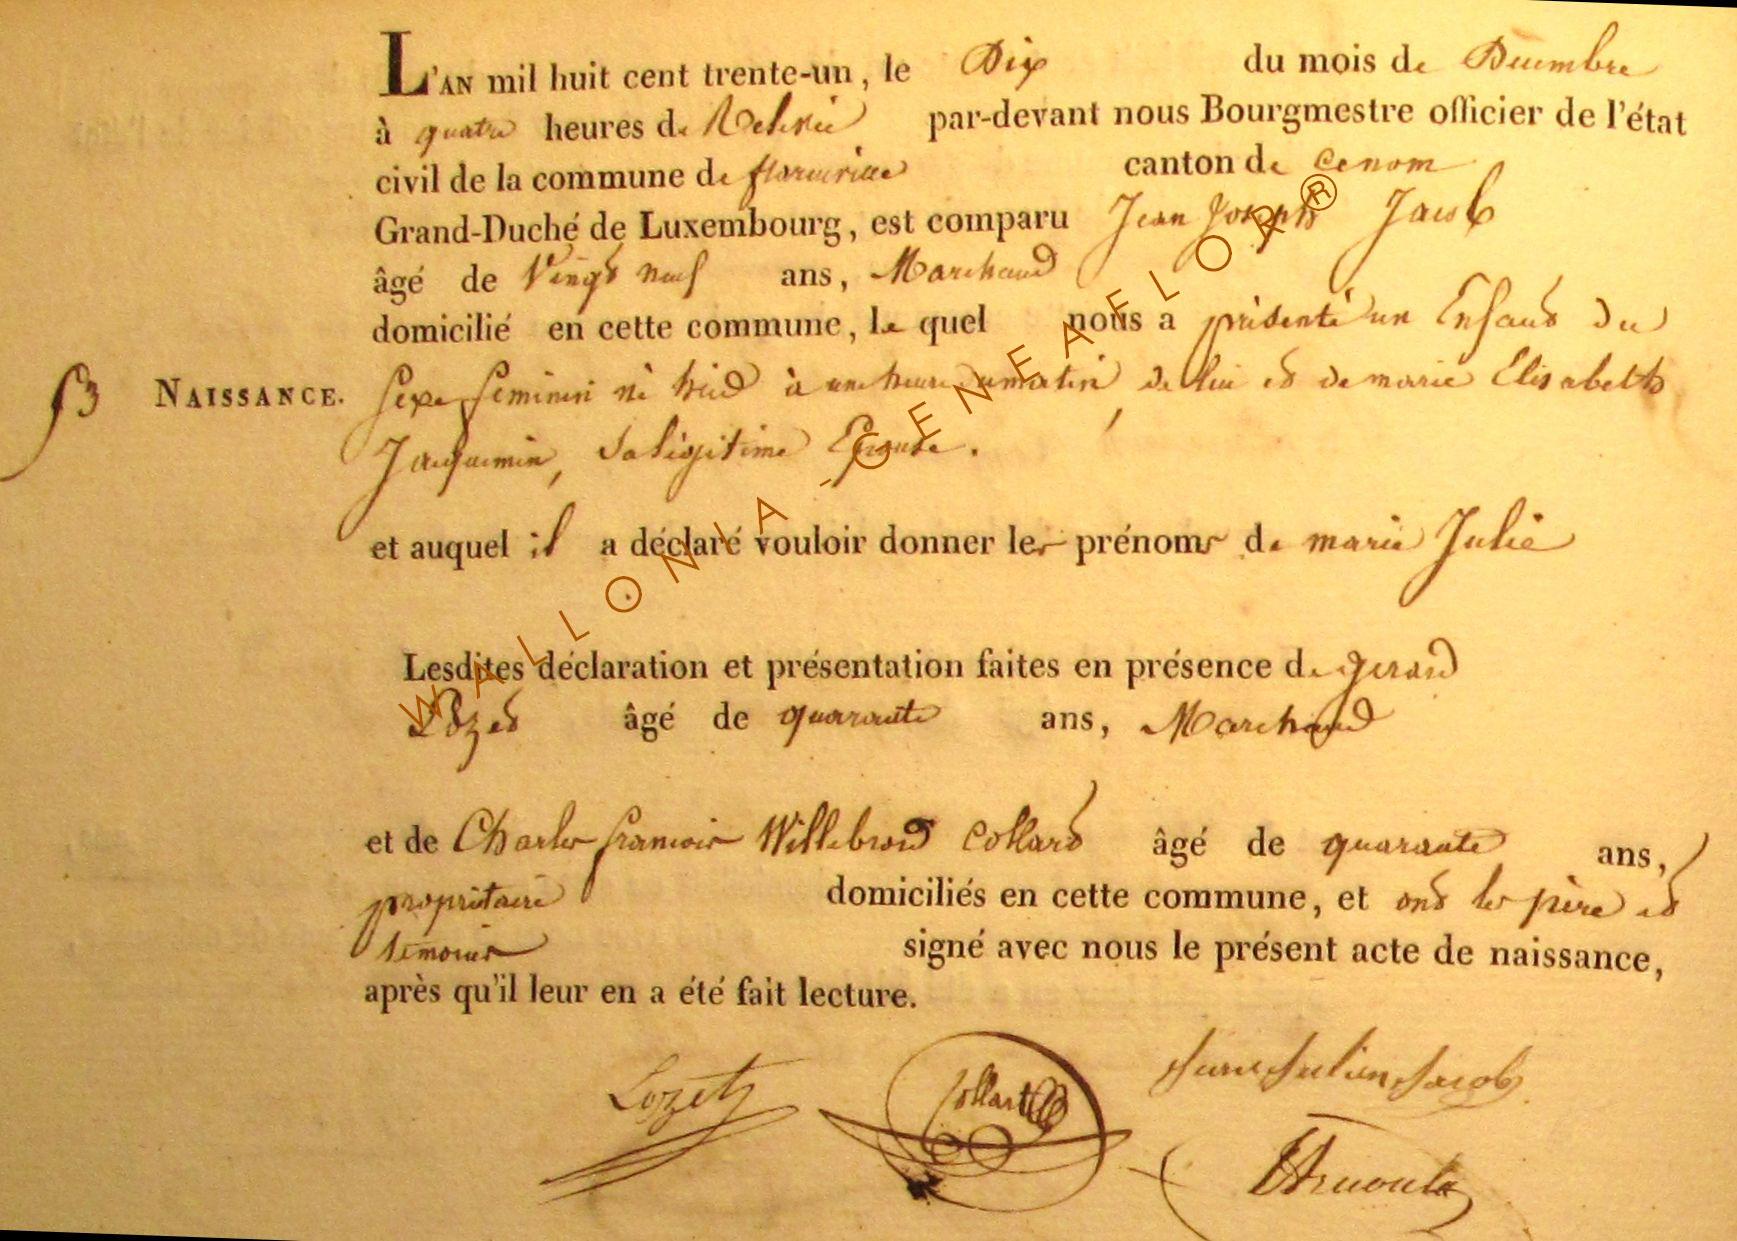 L'AN mil huit cent trente-un, le Dix du mois de Décembre
à quatre heures de Relevée par-devant nous Bourgmestre officier de l'état
civil de la commune de florenville canton de
Grand-Duché de Luxembourg, est comparu Jean Joseph Jacob
âgé de Vingt neuf ans, Marchand
domicilié en cette commune, le quel nous a présenté un Enfant du
53 NAISSANCE. Sexe feminin né hier à une heure du matin, de lui et de marie Elisabeth
Jacquemin, sa légitime Epouse.
et auquel il a déclaré vouloir donner les prénoms de marie Julie
Lesdites déclaration et présentation faites en présence de gerard
Lozet âgé de quarante ans, Marchand
et de Charles francois Willebrord Collard âgé de quarante ans,
propritaire domiciliés en cette commune, et ont les père et
témoins signé avec nous le présent acte de naissance,
après qu'il leur en a été fait lecture.
Lozet Collart Jacob
WALLONIA - GENEAFLOR ®